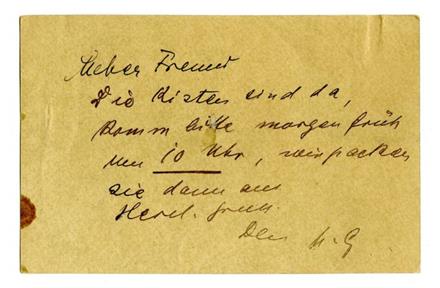 Lieber Freund
Die Kisten sind da,
komm bitte morgen früh
um 10 Uhr, wir packen
sie dann aus
Herzl. Gruß.
Dein M. G